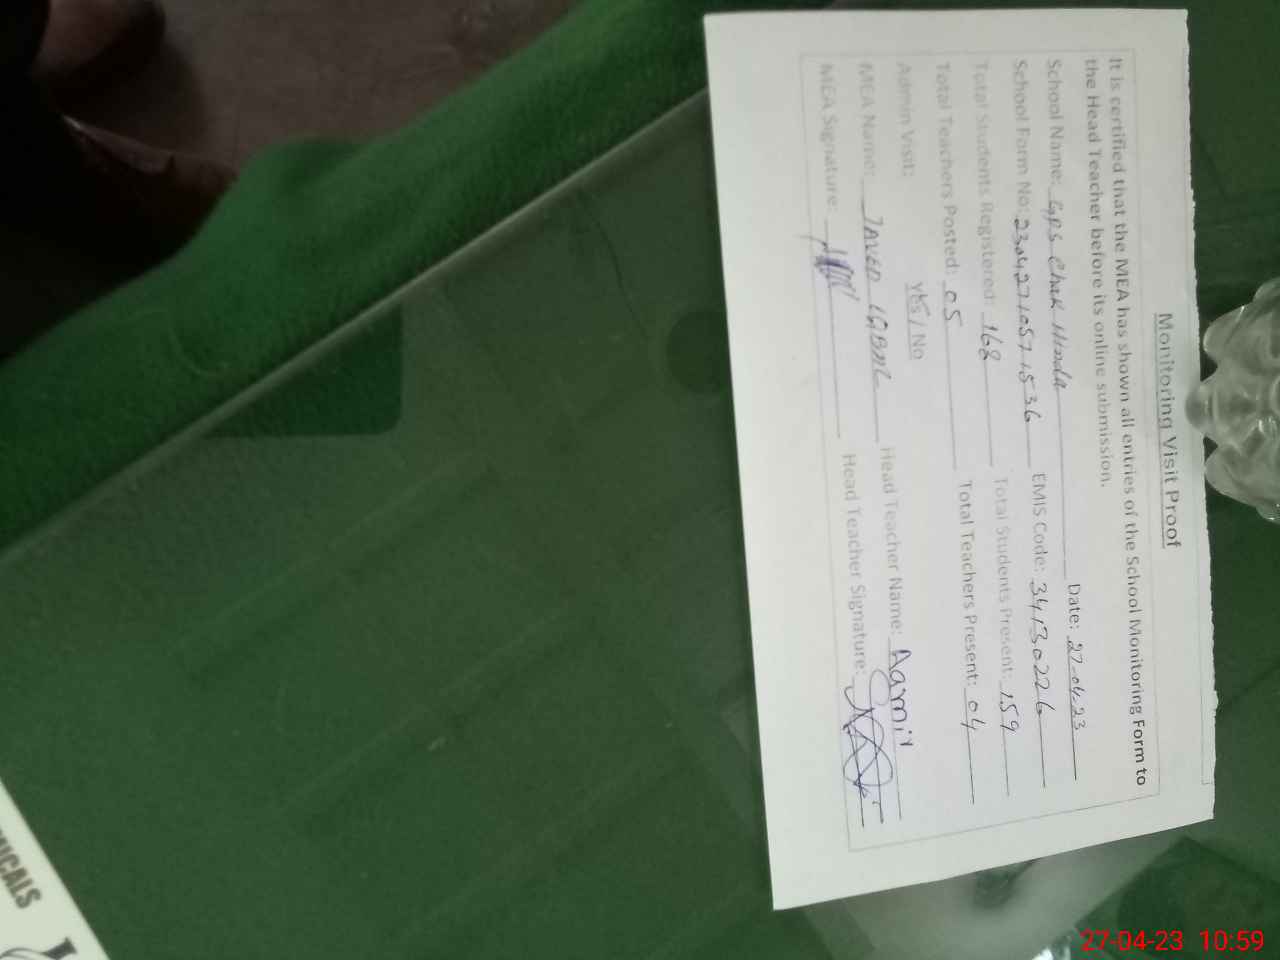 Monitoring Visit Proof
It is certified that the MEA has shown all entries of the School Monitoring Form to
the Head Teacher before its online submission.
School Name: GPS Chak Date: 27-04-23
School Form No: 23042710571536 EMIS Code: 34130226
Total Students Registered: 168 Total Students Present: 159
Total Teachers Posted: 05 Total Teachers Present: 04
Admin Visit: Yes / No
MEA Name: JAVED IQBAL Head Teacher Name: Aamir
MEA Signature: Head Teacher Signature:
27-04-23 10:59